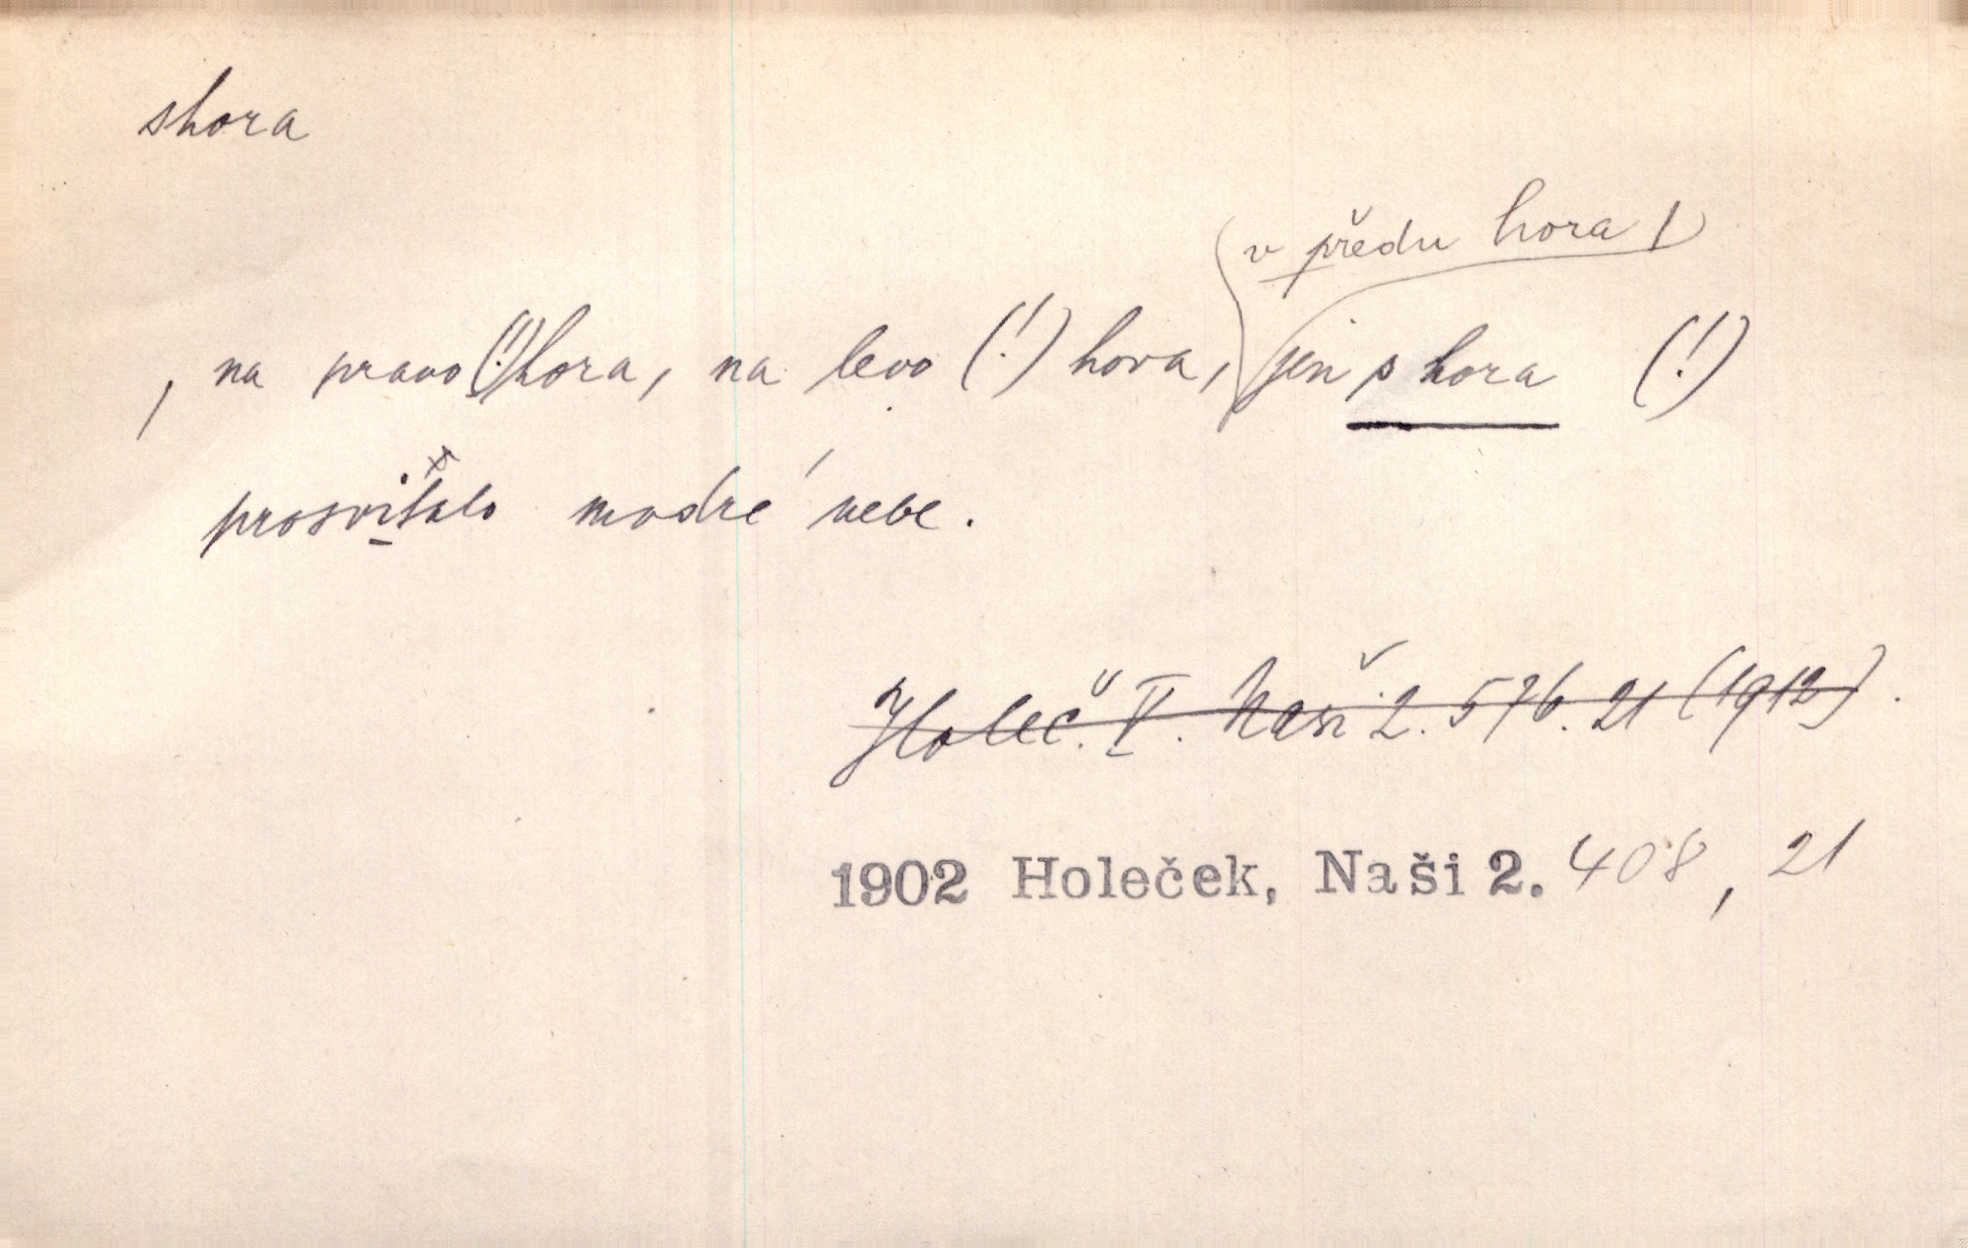 shora
v předu hora,
, na pravo (!) hora, na levo (!) hora, jen s hora (!)
prosvítalo modré nebe.
Holeč. V. Naši 2. 576. 21 (1912).
1902 Holeček, Naši 2. 408, 21